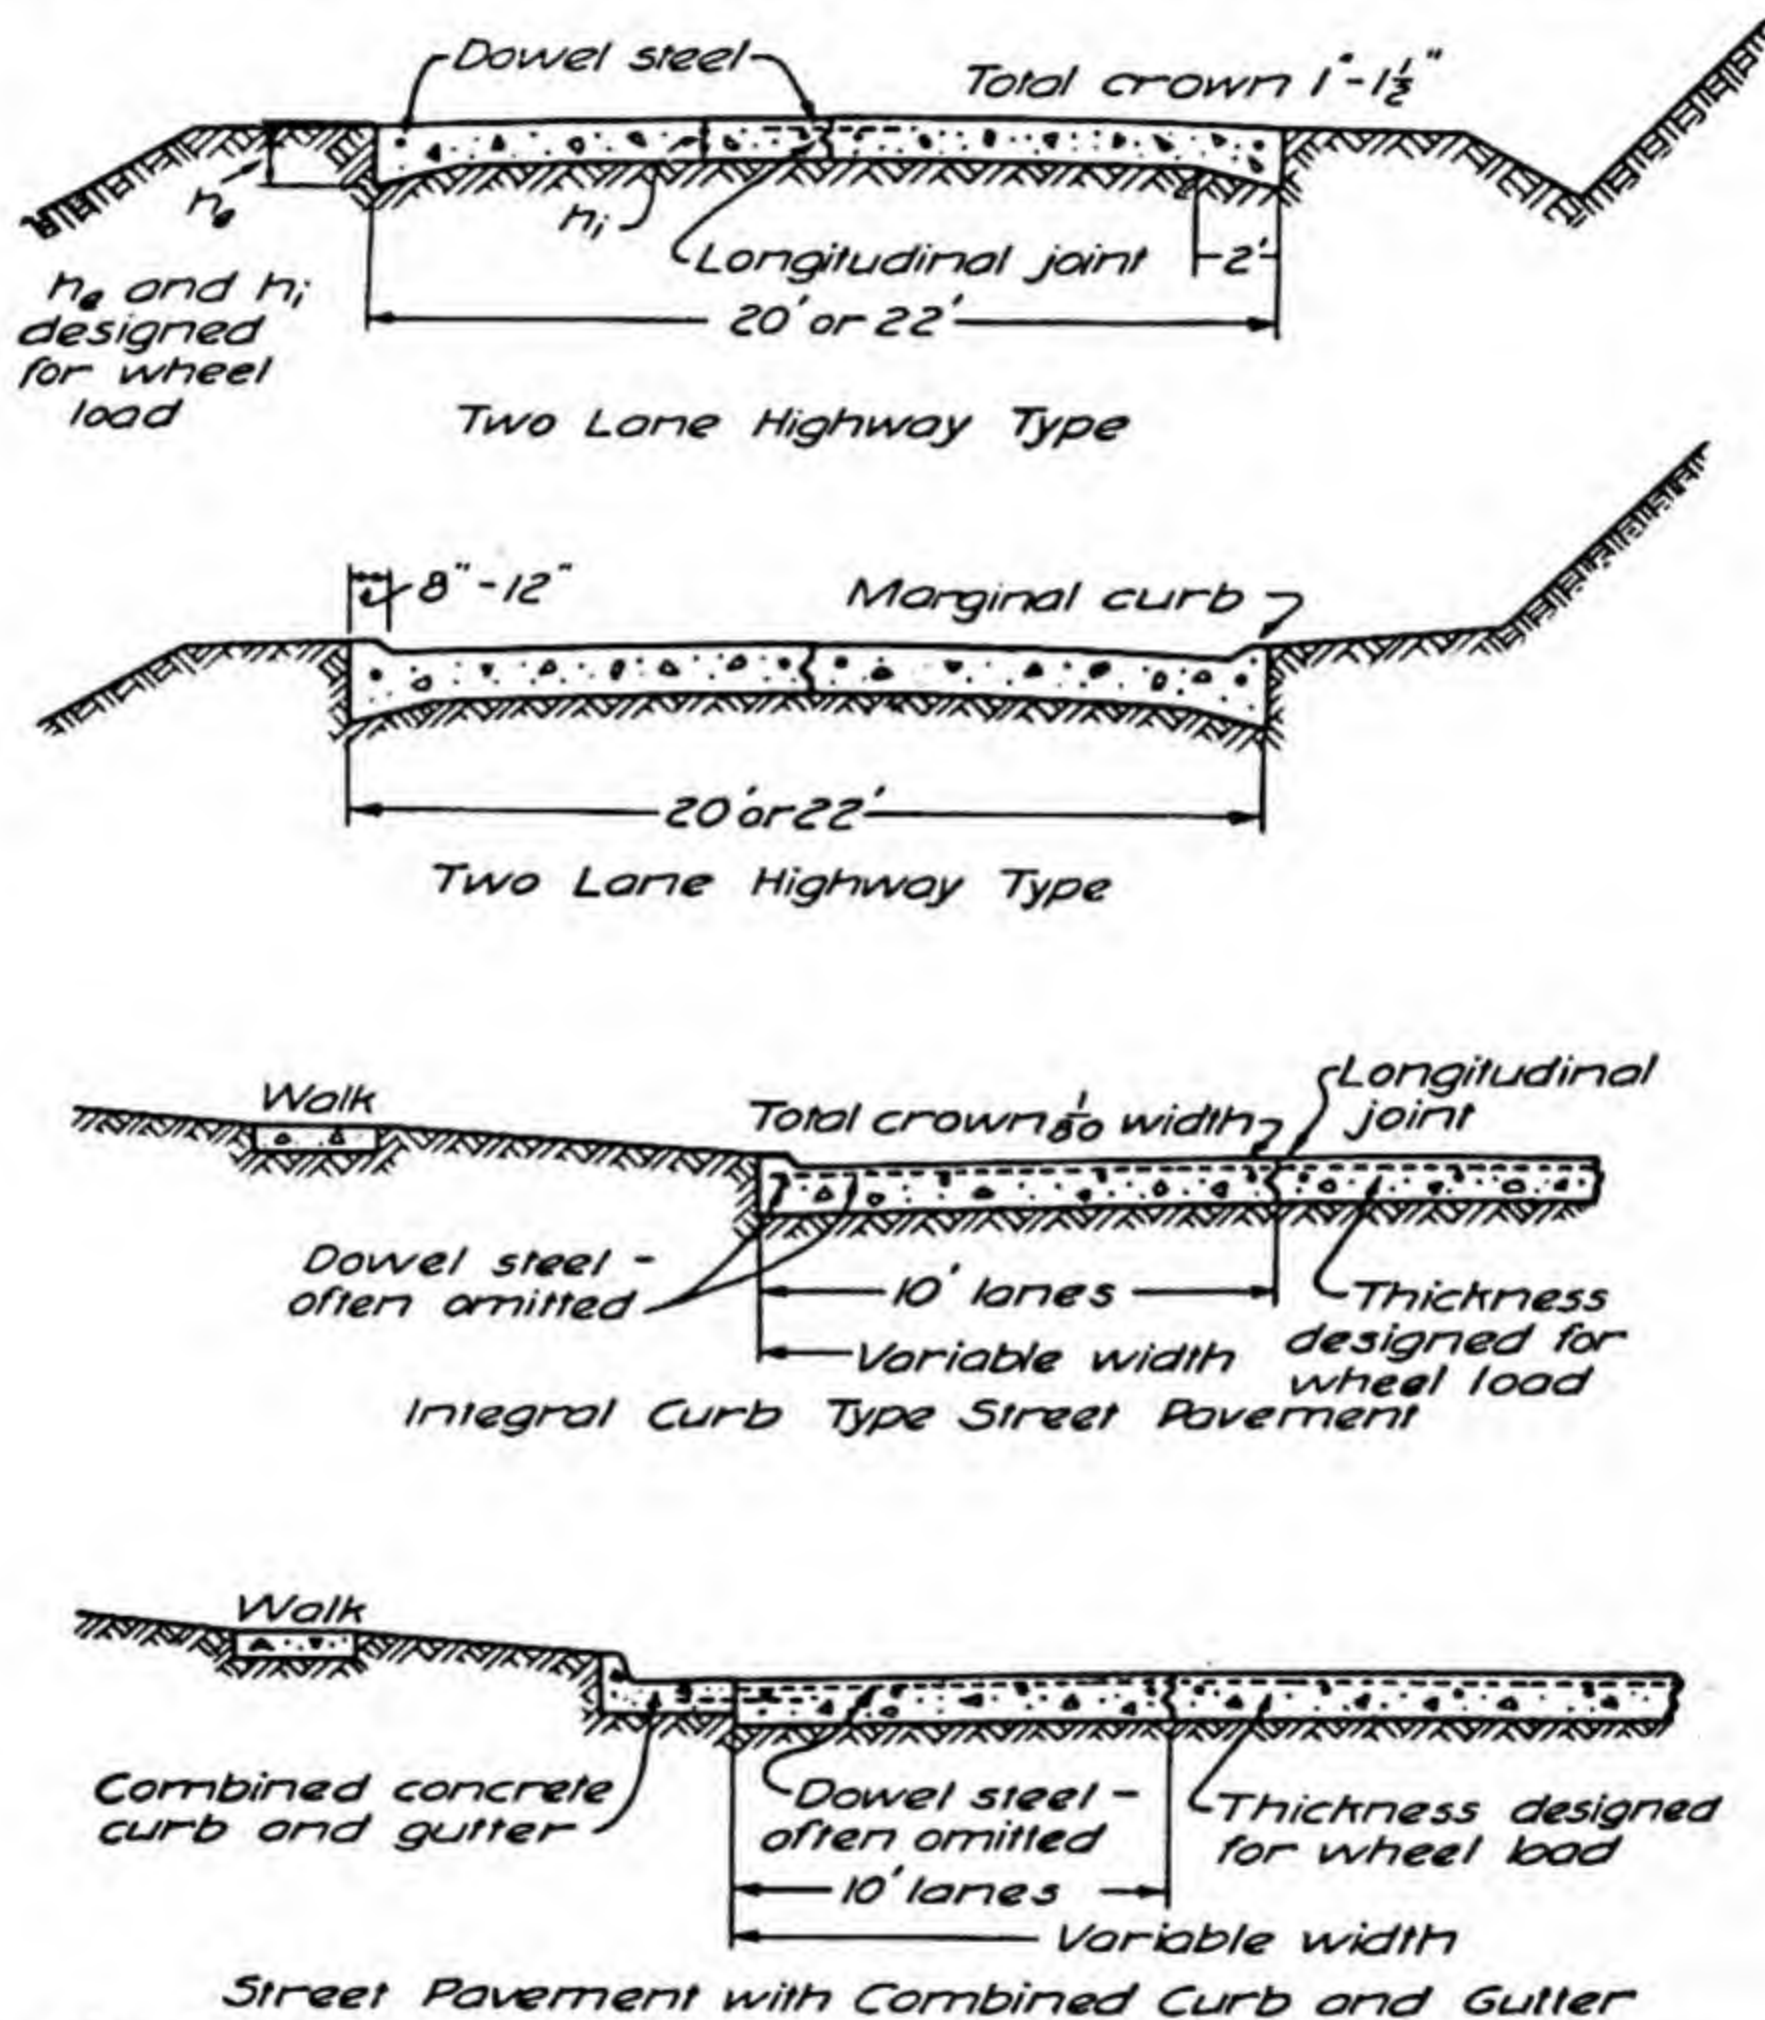 Dowel steel
Total crown 1"-1½"
hₑ
hᵢ
Longitudinal joint
2'
20' or 22'
hₑ and hᵢ
designed
for wheel
load
Two Lane Highway Type
8"-12"
Marginal curb
20' or 22'
Two Lane Highway Type
Walk
Total crown 1/80 width
Longitudinal
joint
Dowel steel -
often omitted
10' lanes
Thickness
designed for
wheel load
Variable width
Integral Curb Type Street Pavement
Walk
Combined concrete
curb and gutter
Dowel steel -
often omitted
Thickness designed
for wheel load
10' lanes
Variable width
Street Pavement with Combined Curb and Gutter